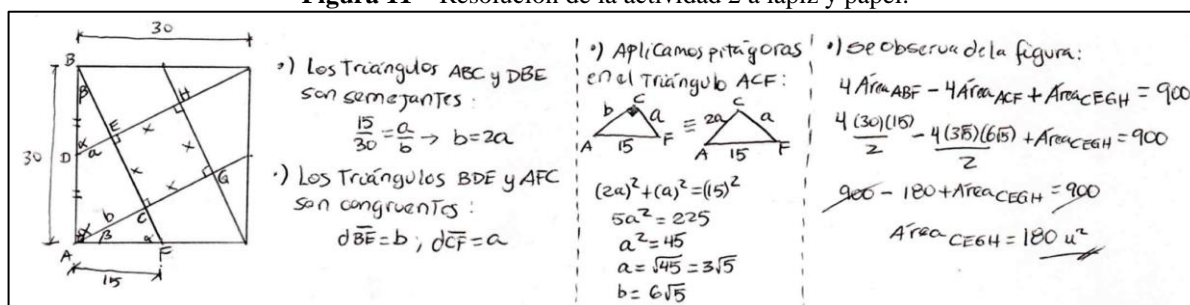 Figura 11 – Resolución de la actividad 2 a lápiz y papel.
30
B
β
H
E
x
α
a
D
30
x
x
x
G
b
C
α
β
α
A
F
15
•) Los Triángulos ABC y DBE
son semejantes:
15/30 = a/b → b=2a
•) Los Triángulos BDE y AFC
son congruentes:
dBE=b ; dCF=a
•) Aplicamos pitágoras
en el Triángulo ACF:
b C a ≡ 2a C a
A 15 F A 15 F
(2a)²+(a)²=(15)²
5a²=225
a²=45
a=√45=3√5
b=6√5
•) se observa de la figura:
4 Área ABF − 4 Área ACF + Área CEGH = 900
4(30)(15)/2 − 4(3√5)(6√5)/2 + Área CEGH = 900
900 − 180 + Área CEGH = 900
Área CEGH = 180 u²